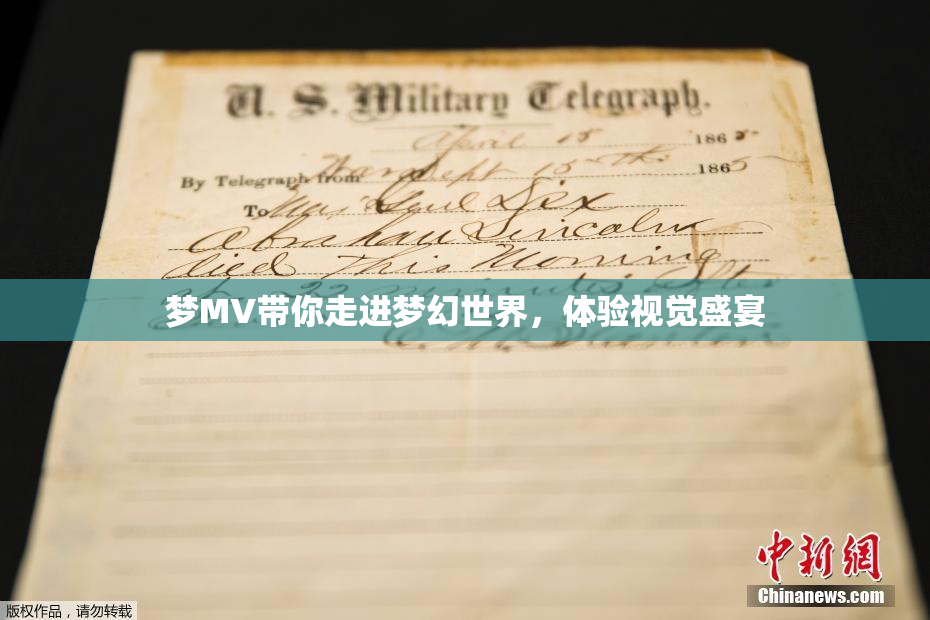 U. S. Military Telegraph.
April 15 1865
By Telegraph from War Dept 15th 1865
To Maj Genl Dix
Abraham Lincoln
died This Morning
at 22 minutes after
梦MV带你走进梦幻世界，体验视觉盛宴
E. M. Stanton
中新網
Chinanews.com
版权作品，请勿转载